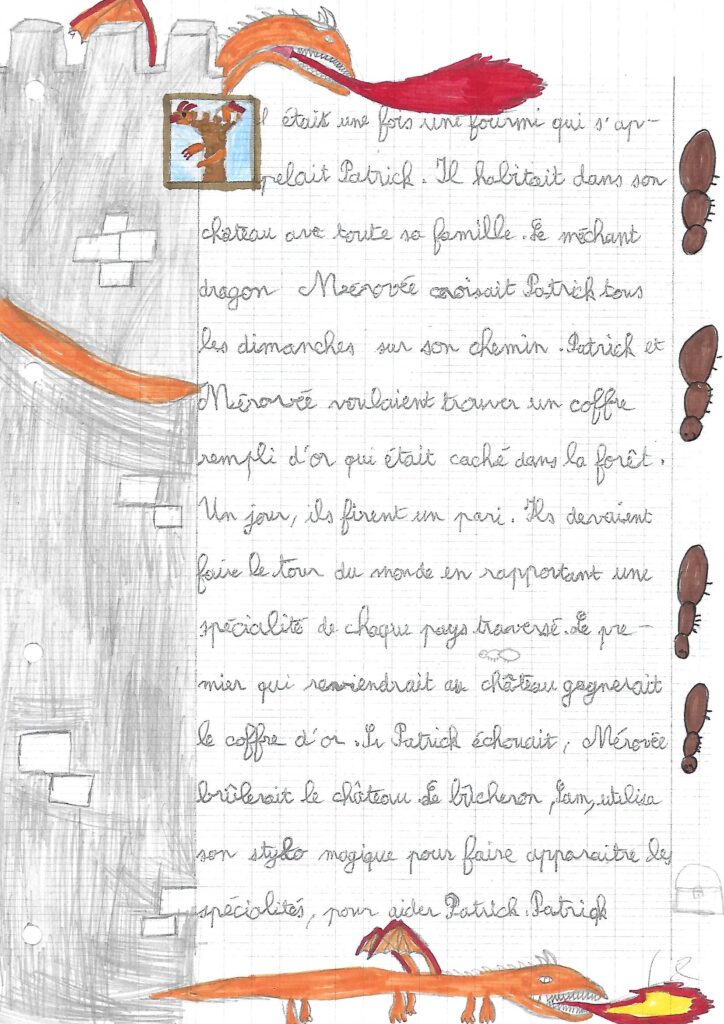 Il était une fois une fourmi qui s'ap-
pelait Patrick. Il habitait dans son
château avec toute sa famille. Le méchant
dragon Mérovée croisait Patrick tous
les dimanches sur son chemin. Patrick et
Mérovée voulaient trouver un coffre
rempli d'or qui était caché dans la forêt.
Un jour, ils firent un pari. Ils devaient
faire le tour du monde en rapportant une
spécialité de chaque pays traversé. Le pre-
mier qui reviendrait au château gagnerait
le coffre d'or. Si Patrick échouait, Mérovée
brûlerait le château. Le bûcheron, Sam, utilisa
son stylo magique pour faire apparaitre les
spécialités, pour aider Patrick. Patrick